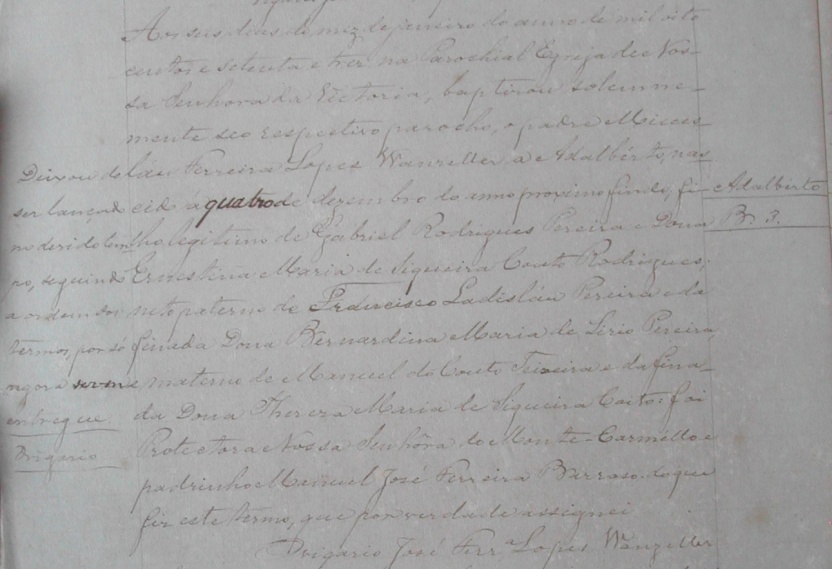 Aos seis dias do mez de janeiro do anno de mil oito
centos e setenta e trez na Parochial Egreja de Nos-
sa Senhora da Victoria, baptisou solemne-
mente seo respectivo parocho, o padre
Ferreira Lopes Wanzeller a Adalbérto, nas
cido á quatro de dezembro do anno proximo findo, fi-
lho legitimo de Gabriel Rodrigues Pereira e Dona
Ernestina Maria de Siqueira Couto Rodrigues,
neto paterno de Francisco Ladisláu Pereira e da
finada Dona Bernardina Maria de Pereira,
e materno de Manuel do Couto Teixeira e da fina-
da Dona Thereza Maria de Siqueira Couto: foi
Protectora Nossa Senhôra do Monte-Carmello e
padrinho Manuel José Ferreira Barroso. do que
fiz este termo, que por verdade assignei
O vigario José Ferr.ª Lopes Wanzeller
Adalberto
B. 3.
Deixou de
ser lançado
no devido tem-
po, seguindo
a ordem dos
termos, por só
agora
entregue
Vigario